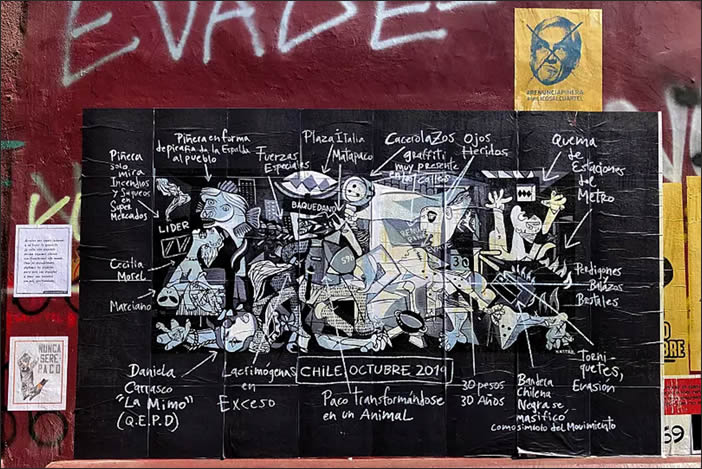 EVADE
#RENUNCIAPIÑERA
#MILICOSALCUARTEL
Piñera
solo
mira
Incendios
y Saqueos
en Super
Mercados
Piñera en forma
de piraña da la Espalda
al pueblo
Fuerzas
Especiales
Plaza Italia
Matapaco
Cacerolazos
graffiti
muy presente
en las calles
Ojos
Heridos
Quema
de
Estaciones
de
Metro
LIDER
BAQUEDANO
Cecilia
Morel
Marciano
30
Perdigones
Balazos
Bestiales
CHILE, OCTUBRE 2019
Daniela
Carrasco
"LA Mimo"
(Q.E.P.D)
Lacrimogenas
en
Exceso
Paco transformándose
en un Animal
30 pesos
30 Años
Bandera
Chilena
Negra se
masificó
como simbolo del Movimiento
Torni-
quetes,
Evasion
NUNCA
SERÉ
PACO